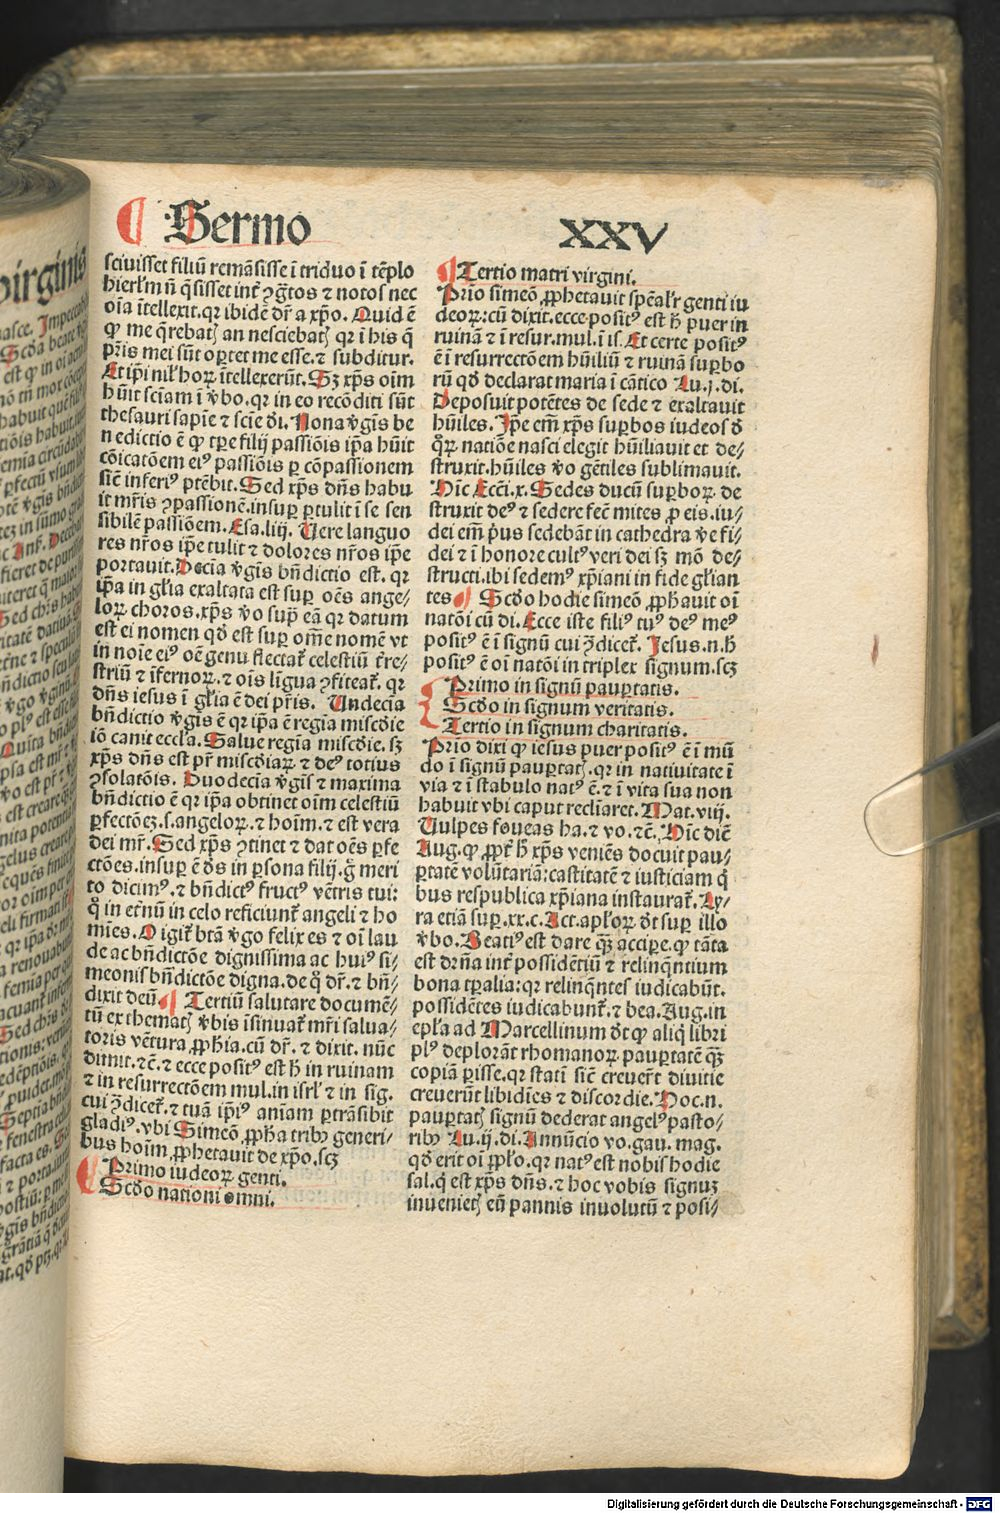 ¶ Sermo XXV
scivisset filiū remāsisse ī triduo ī tēplo
hierl'm nō q̄sisset int' ꝯg̃tos ⁊ notos nec
oīa ītellexit. qꝛ ibidē dr̃ a xp̄o. Quid ē
ꝙ me q̄rebatꝭ an nesciebatꝭ qꝛ ī his q̄
pr̃is mei sūt oꝑtet me esse. ⁊ subditur.
Et ip̄i nil hoꝝ ītellexerūt. Sꝫ xp̄s oīm
hūit sciam ī v̓bo. qꝛ in eo recōditi sūt
thesauri sapīe ⁊ scie d̄i. Nona v̓gis be
nedictio ē ꝙ tꝑe filij passiōis ip̄a hūit
cōicatōem eiꝰ passiōis ꝑ cōpassionem
sic̄ inferiꝰ ptēbit. Sed xp̄s dn̄s habu
it mr̃is ꝯpassionē. insuꝑ ꝑtulit ī se sen
sibilē passiōem. Esa. liij. Vere languo
res nr̃os ip̄e tulit ⁊ dolores nr̃os ip̄e
portauit. Decīa v̓gīs bn̄dictio est. qꝛ
ip̄a in gl'ia exaltata est suꝑ oēs ange⸗
loꝝ choros. xp̄s v̓o suꝑ eā qꝛ datum
est ei nomen qd̓ est suꝑ om̄e nomē vt
in noīe eiꝰ oē genu flectat̃ celestiū t̓re⸗
striū ⁊ īfernoꝝ. ⁊ oīs līgua ꝯfiteat̃. qꝛ
dn̄s iesus ī gl'ia ē dei pr̃is. Undecīa
bn̄dictio v̓gīs ē qꝛ ip̄a ē regīa miscd̓ie
iō canit eccl'a. Salue regīa miscd̓ie. sꝫ
xp̄s dn̄s est pr̃ miscd̓iaꝝ ⁊ deꝰ totius
ꝯsolatōis. Duodecīa v̓gīs ⁊ maxima
bn̄dictio ē qꝛ ip̄a obtinet oīm celestiū
ꝑfectōeꝫ. s. angeloꝝ. ⁊ hoīm. ⁊ est vera
dei mr̃. Sed xp̄s ꝯtinet ⁊ dat oēs ꝑfe
ctōes. insuꝑ ē d̓s in ꝑsona filij. g̊ meri
to dicimꝰ. ⁊ bn̄dictꝰ fructꝰ vētris tui:
q̊ in et̓nū in celo reficiunt̃ angeli ⁊ ho
mīes. O igit̃ btā v̓go felix es ⁊ oī lau
de ac bn̄dictōe dignissima ac huiꝰ si⸗
meonis bn̄dictōe digna. de q̊ dr̃. ⁊ bn̄⸗
dixit deū ¶ Tertiū salutare documē⸗
tū ex thematꝭ v̓bis īsinuat̃ mr̃i salua⸗
toris vētura ꝓph̄ia. cū dr̃. ⁊ dixit. nūc
dimit. ⁊ē. ⁊ ecce positꝰ est h̄ in ruinam
⁊ in resurrectōem mul. in isrl' ⁊ in sig.
cui ꝯ̄dicet̃. ⁊ tuā ip̄iꝰ anīam ꝑtrāsibit
gladiꝰ. vbi Simeō ꝓph̄a tribꝫ generi⸗
bus hoīm ꝓphetauit de xp̄o. scꝫ
¶ Primo iudeoꝝ genti.
Scd̓o nationi omni.
¶ Tertio matri virgini.
Prīo simeō ꝓphetauit spēal'r genti iu
deoꝝ: cū dixit. ecce positꝰ est h̄ puer in
ruinā ⁊ ī resur. mul. ī is. Et certe positꝰ
ē ī resurrectōem hūiliū ⁊ ruinā suꝑbo
rū qd̓ declarat maria ī cātico Lu. j. di.
Deposuit potētes de sede ⁊ exaltauit
hūiles. Ip̄e em̄ xp̄s suꝑbos iudeos d̓
q̊ꝝ natiōe nasci elegit hūiliauit et de⸗
struxit. hūiles v̓o gētiles sublimauit.
Hīc Ecci. x. Sedes ducū suꝑboꝝ de
struxit deꝰ ⁊ sedere fec̄ mites ꝓ eis. iu⸗
dei em̄ pͥus sedebāt in cathedra v̓e fi⸗
dei ⁊ ī honore cultꝰ veri dei sꝫ mō de⸗
structi. ibi sedemꝰ xp̄iani in fide gl'ian
tes ¶ Scd̓o hodie simeō ꝓph̄auit oī
natōi cū di. Ecce iste filiꝰ tuꝰ deꝰ meꝰ
positꝰ ē ī signū cui ꝯ̄dicet̃. Jesus. n. h̄
positꝰ ē oī natōi in triplex signum. scꝫ
Primo in signū pauꝑtatis.
Scd̓o in signum veritatis.
Tertio in signum charitatis.
Prīo dixi ꝙ iesus puer positꝰ ē ī mū
do ī signū pauꝑtatꝭ. qꝛ in natiuitate ī
via ⁊ ī stabulo natꝰ ē. ⁊ ī vita sua non
habuit vbi caput reclīaret. Mat. viij.
Vulpes foueas ha. ⁊ vo. ⁊ē. Hīc dic̄
Aug. ꝙ ꝓpt̃ h̄ xp̄s veniēs docuit pau⸗
ꝑtatē volūtariā: castitatē ⁊ iusticiam q̄
bus respublica xp̄iana instaurat̃. Ly⸗
ra etiā suꝑ. xx. c. Act. apl'oꝝ d̓t suꝑ illo
v̓bo. Beatiꝰ est dare q̄ꝫ acciꝑe. ꝙ tāta
est dr̄na int̓ possidētiū ⁊ relinq̄ntium
bona tꝑalia: qꝛ relinq̄ntes iudicabūt.
possidētes iudicabunt̃. ⁊ bea. Aug. in
epl'a ad Marcellinum d̓t ꝙ aliq̄ libri
plꝰ deplorāt rhomanoꝝ pauꝑtatē q̄ꝫ
copiā ꝑisse. qꝛ statī sic̄ creuer̃t diuitie
creuerūt libidīes ⁊ discordie. Hoc. n.
pauꝑtatꝭ signū dederat angelꝰ pasto⸗
ribꝫ Lu. ij. di. Annūcio vo. gau. mag.
qd̓ erit oī ꝓpl'o. qꝛ natꝰ est nobis hodie
sal. q̄ est xp̄s dn̄s. ⁊ hoc vobis signuꝫ
inuenietꝭ eū pannis inuolutū ⁊ posi⸗
Digitalisierung gefördert durch die Deutsche Forschungsgemeinschaft - DFG